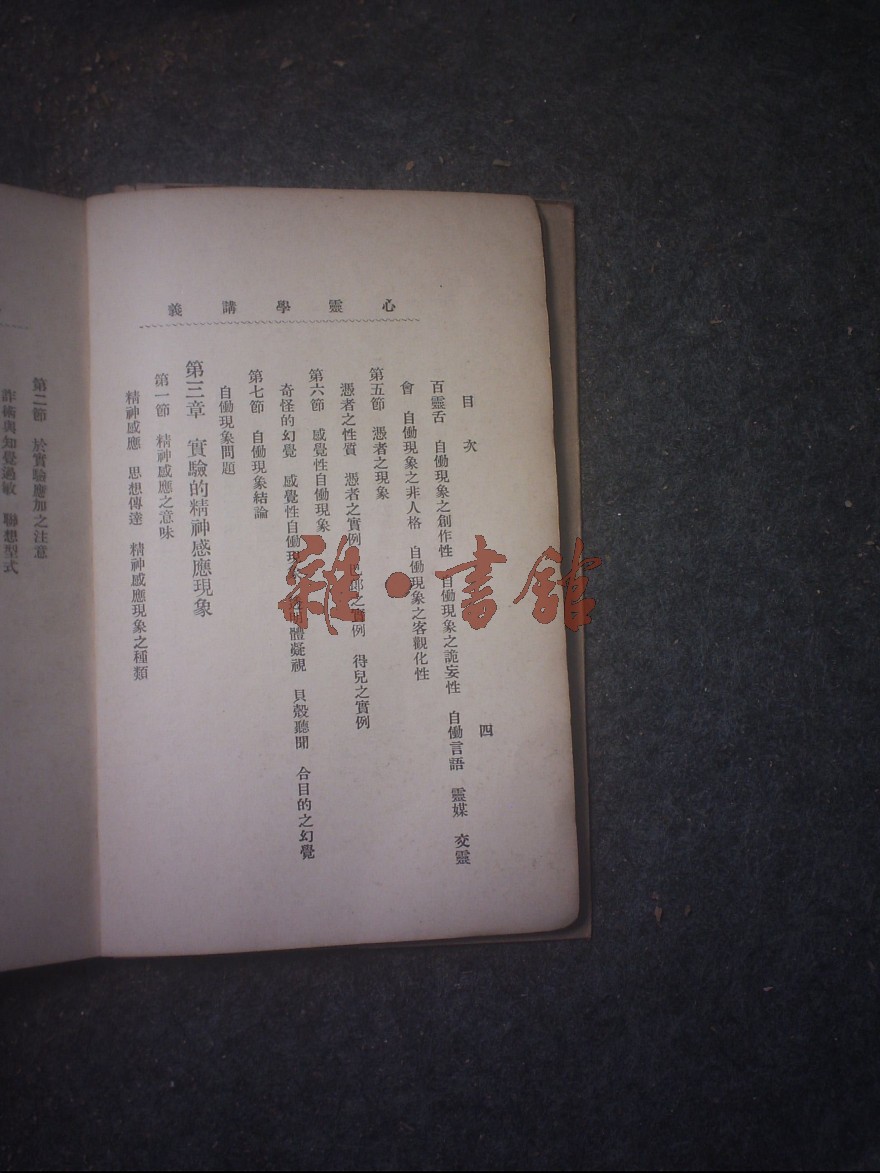 心靈學講義
目次
四
百靈舌　自働現象之創作性　自働現象之詭妄性　自働言語　靈媒　交靈
會　自働現象之非人格　自働現象之客觀化性
第五節　憑者之現象
憑者之性質　憑者之實例　之實例　得兒之實例
第六節　感覺性自働現象
奇怪的幻覺　感覺性自働現　透明體凝視　貝殼聽聞　合目的之幻覺
第七節　自働現象結論
自働現象問題
第三章　實驗的精神感應現象
第一節　精神感應之意味
精神感應　思想傳達　精神感應現象之種類
第二節　於實驗應加之注意
詐術與知覺過敏　聯想型式
雜·書館